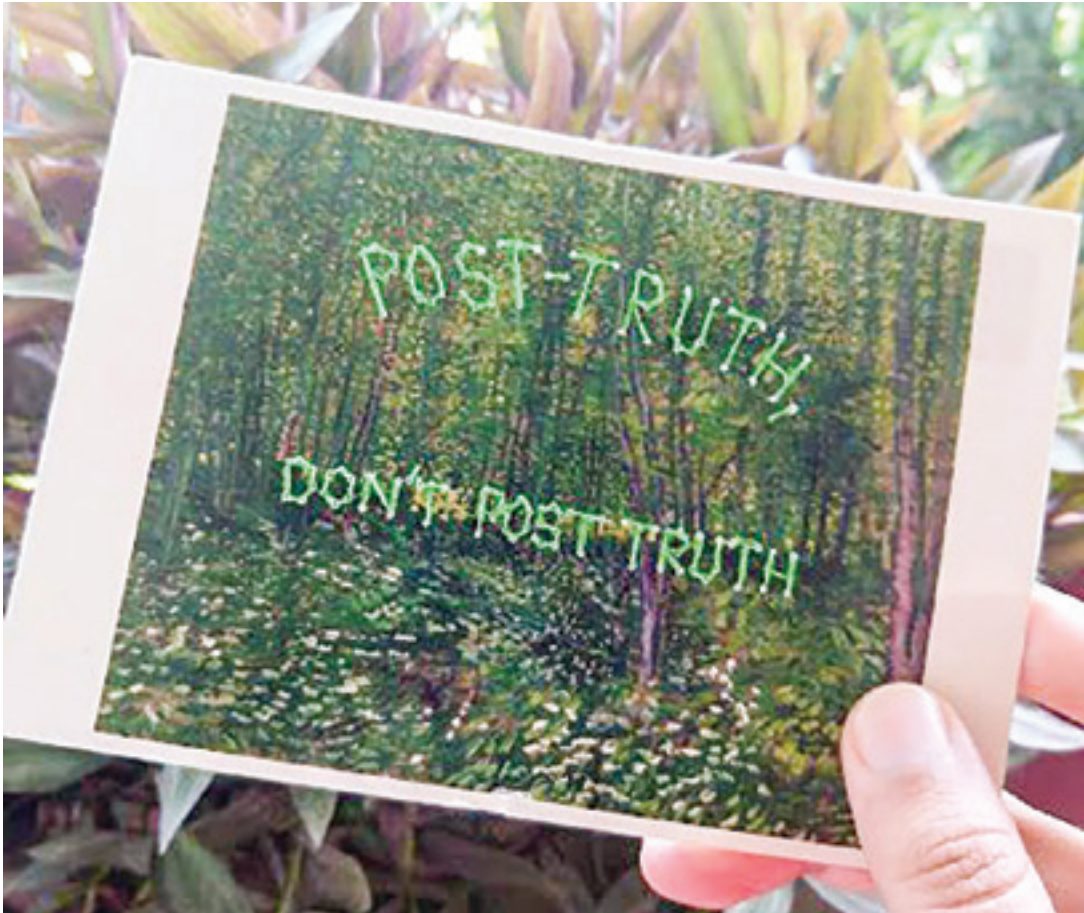 POST-TRUTH,
DON'T POST TRUTH